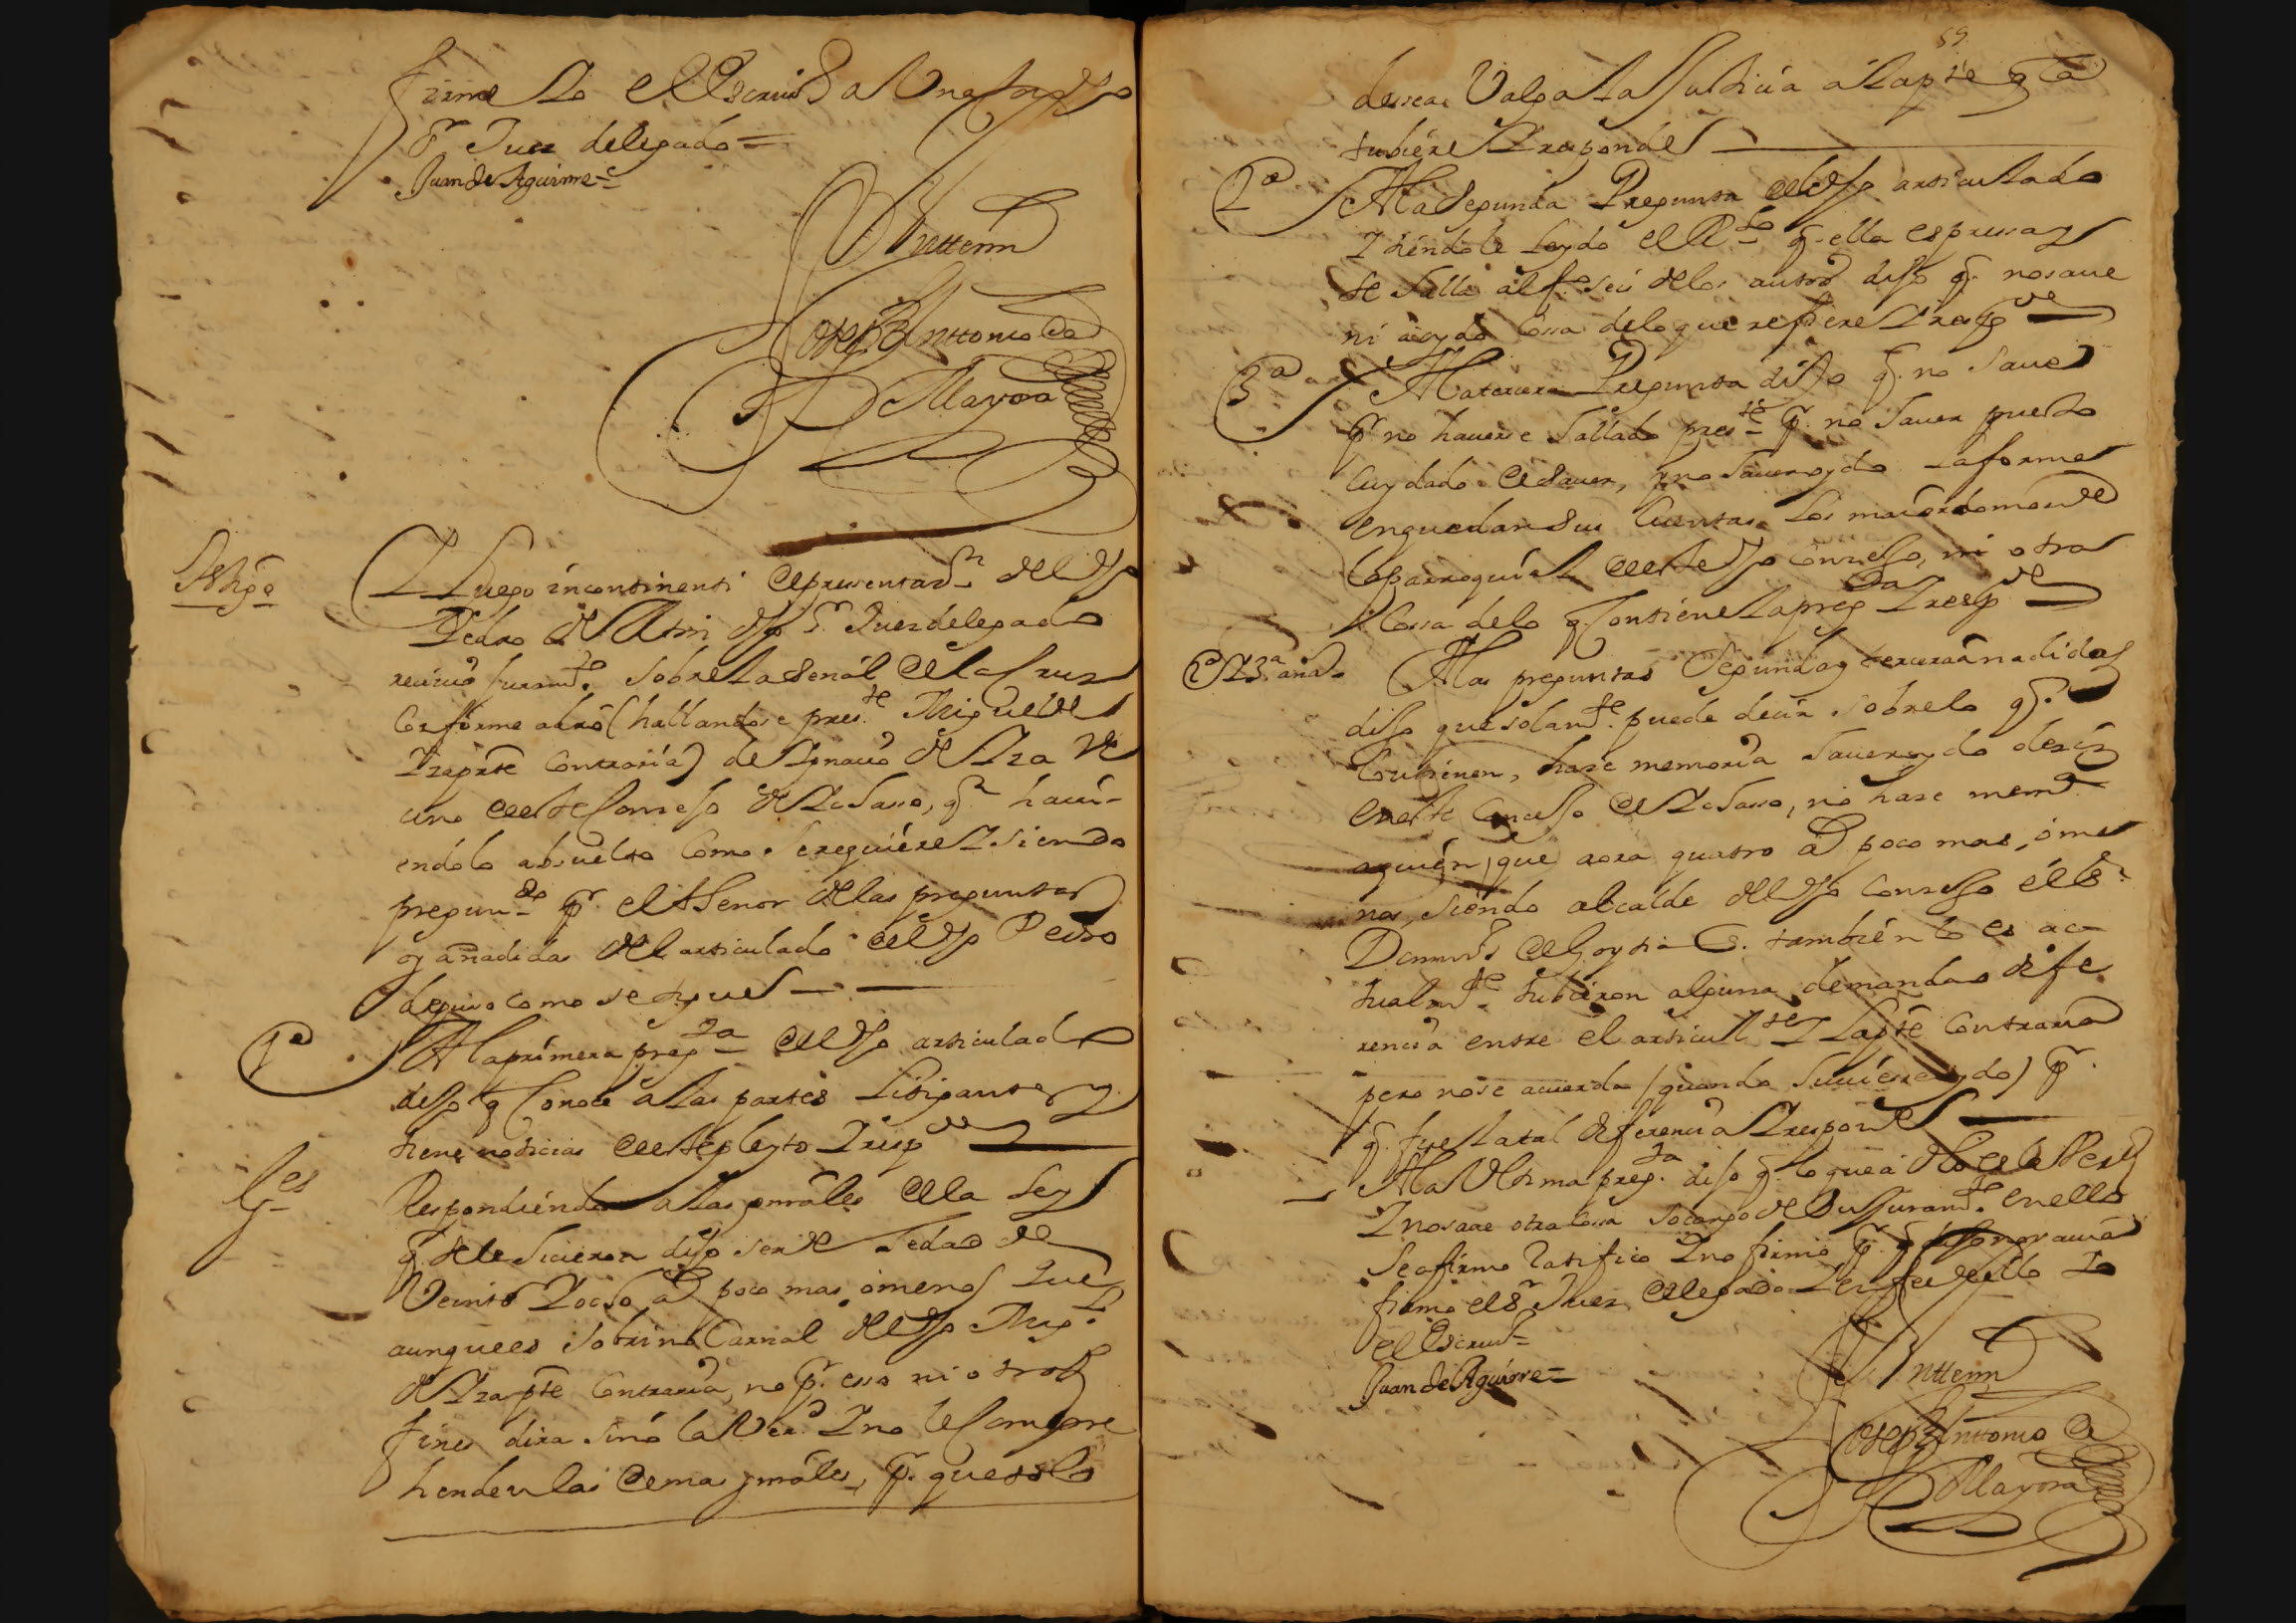 firme Yo el Escriuº a Vno con dho
Sr Juez delegado=
Juan de Aguirre=
Anttemi
Joseph Anttonio de
Mayora
Testigo
Y Luego incontinenti de presentaon del dho
Pedro de dho Sr Juez delegado
reciuio juramto sobre la Señal de la Cruz
Conforme a dro (hallandose preste Miguel de
Yza pte Contraria) de Ygnacio de Yza Ve
cino deeste Conzejo de Lasao, qn haui-
endolo absuelto Como Serequiere Y siendo
pregundo pr el thenor de las preguntas
y añadidas del articulado del dho Pedro
depuso como se sigue
1ª
A la primera pregta del dho articulado
dijo q Conoce a las partes Litigantes y
tiene noticias deeste pleyto Y respde
Gles
Respondiendo a las gnrales de la Ley
q. se le hicieron dijo ser de hedad de
Veinte Y ocho as poco mas ó menos Y que
aunque es sobrino Carnal del dho Migl
de Yza pte Contraria, no pr esso ni otros
fines dira sinó la Verd Y no le Compre
henden las demas gnrales, pr que solo
59
dessea Valga la Justicia á la pte q la
tubiere Y responde
2ª
A la Segunda Pregunta del dho articulado
Y hiendole leydo el Rdo q. ella espressa y
se halla al fº seis de los autos dijo q. no saue
ni á oydo Cossa delo que refiere Y respde
3ª
A la tercera Pregunta dijo q. no Saue
pr no hauerse hallado preste pr no hauer puesto
Cuydado de Sauer, y no hauer oydo la forma
en que dan Sus Cuentas Los maiordomos de
la parroquial deeste dho Conzejo, ni otra
Cossa delo q Contiene la pregta Y respde
2ª Y 3ª añad.
A las preguntas Segunda y tercera añadidas
dijo que solamte puede decir sobre lo q.
Contienen, haze memoria hauer oydo dezir
eneste Conzejo de Lasao, nó haze memª
aquien, que aora quatro as poco mas, ó me
nos, siendo alcalde del dho Conzejo él Sr
Domingo de Goytia q. tambien lo es ac-
tualmte tubieron alguna demanda o dife
rencia entre el articulte Y la pte Contraria
pero nose acuerda (quando huuiere oydo) pr
q. fue la tal diferencia Y responde
A la Vltima pregta dijo q. lo que á dho es la Verd
Y nosaue otra Cossa so cargo de Su Juramto en ello
Se afirmo ratifico Y no firmó pr q dijo no sauia
firmo el Sr Juez delegado Y en fee deello Yo
el Escriuº
Juan de Aguirre=
Anttemi
Joseph Anttonio de
Mayora